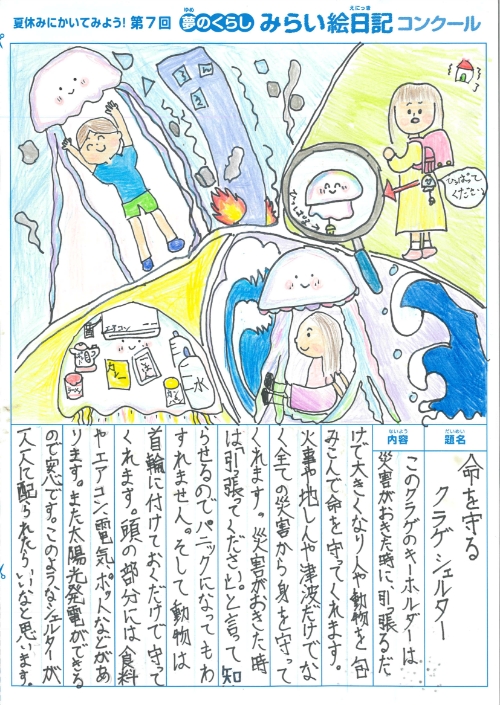 夏休みにかいてみよう!第7回 夢のくらし みらい絵日記コンクール
ゆめ
えにっき
ひっぱって
ください
エアコン
水
だいめい
題名
命を守る
クラゲシェルター
ないよう
内容
このクラゲのキーホルダーは
災害がおきた時に、引張るだ
けで大きくなり人や動物を包
みこんで命を守ってくれます。
火事や地しんや津波だけでな
く全ての災害から身を守って
くれます。災害がおきた時
は「引っ張ってください。」と言って知
らせるのでパニックになってもわ
すれません。そして動物は
首輪に付けておくだけで守って
くれます。頭の部分には食料
やエアコン、電気ポットなどがあ
ります。また太陽光発電ができる
ので安心です。このようなシェルターが
一人一人に配られたらいいなと思います。